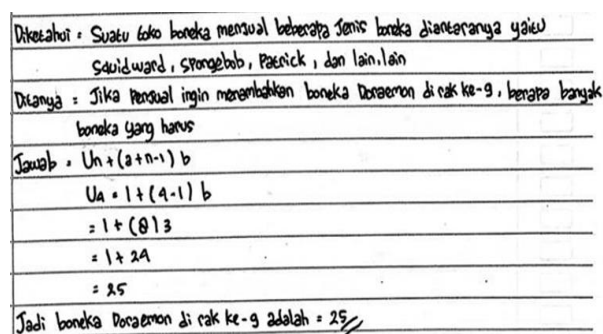 Diketahui : Suatu toko boneka menjual beberapa Jenis boneka diantaranya yaitu
Squidward, Spongebob, Patrick, dan lain, lain
Ditanya : Jika Penjual ingin menambahkan boneka Doraemon di rak ke-9, berapa banyak
boneka yang harus
Jawab . Un + (a+n-1) b
U4 = 1 + (4-1) b
= 1 + (8) 3
= 1 + 24
= 25
Jadi boneka Doraemon di rak ke-9 adalah = 25//